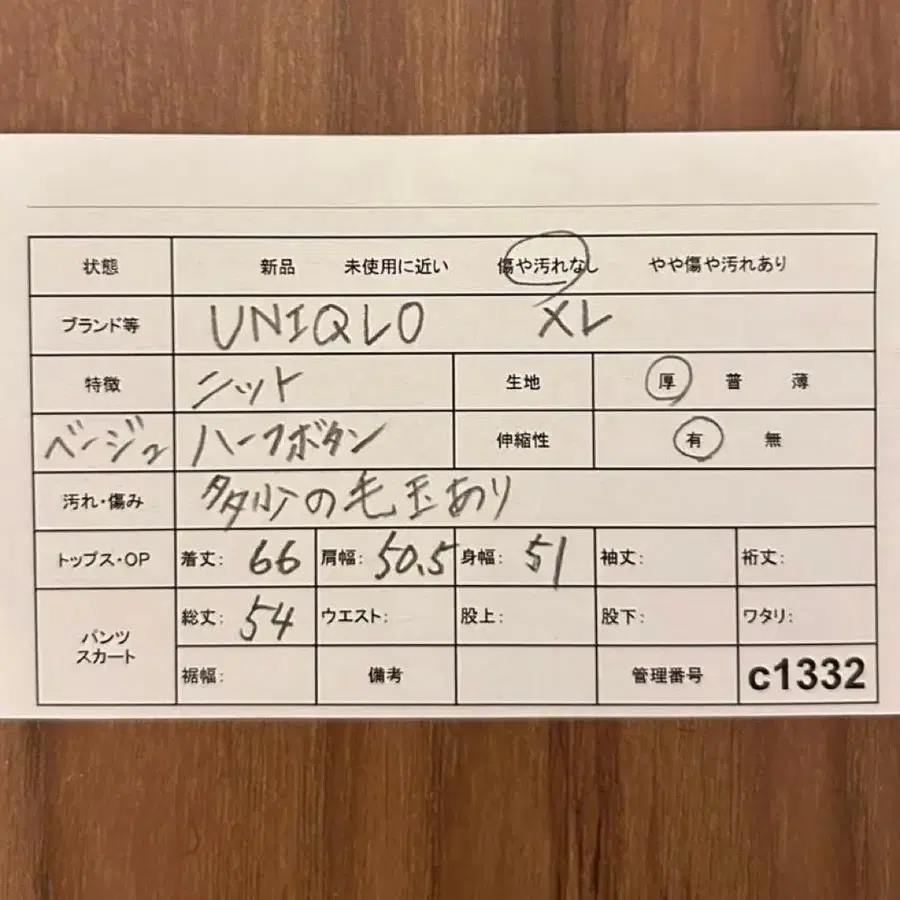 状態 新品 未使用に近い 傷や汚れなし やや傷や汚れあり
ブランド等 UNIQLO XL
特徴 ニット 生地 厚 普 薄
ベージュ ハーフボタン 伸縮性 有 無
汚れ・傷み 多少の毛玉あり
トップス・OP 着丈: 66 肩幅: 50.5 身幅: 51 袖丈: 裄丈:
パンツ スカート 総丈: 54 ウエスト: 股上: 股下: ワタリ:
裾幅: 備考 管理番号 c1332